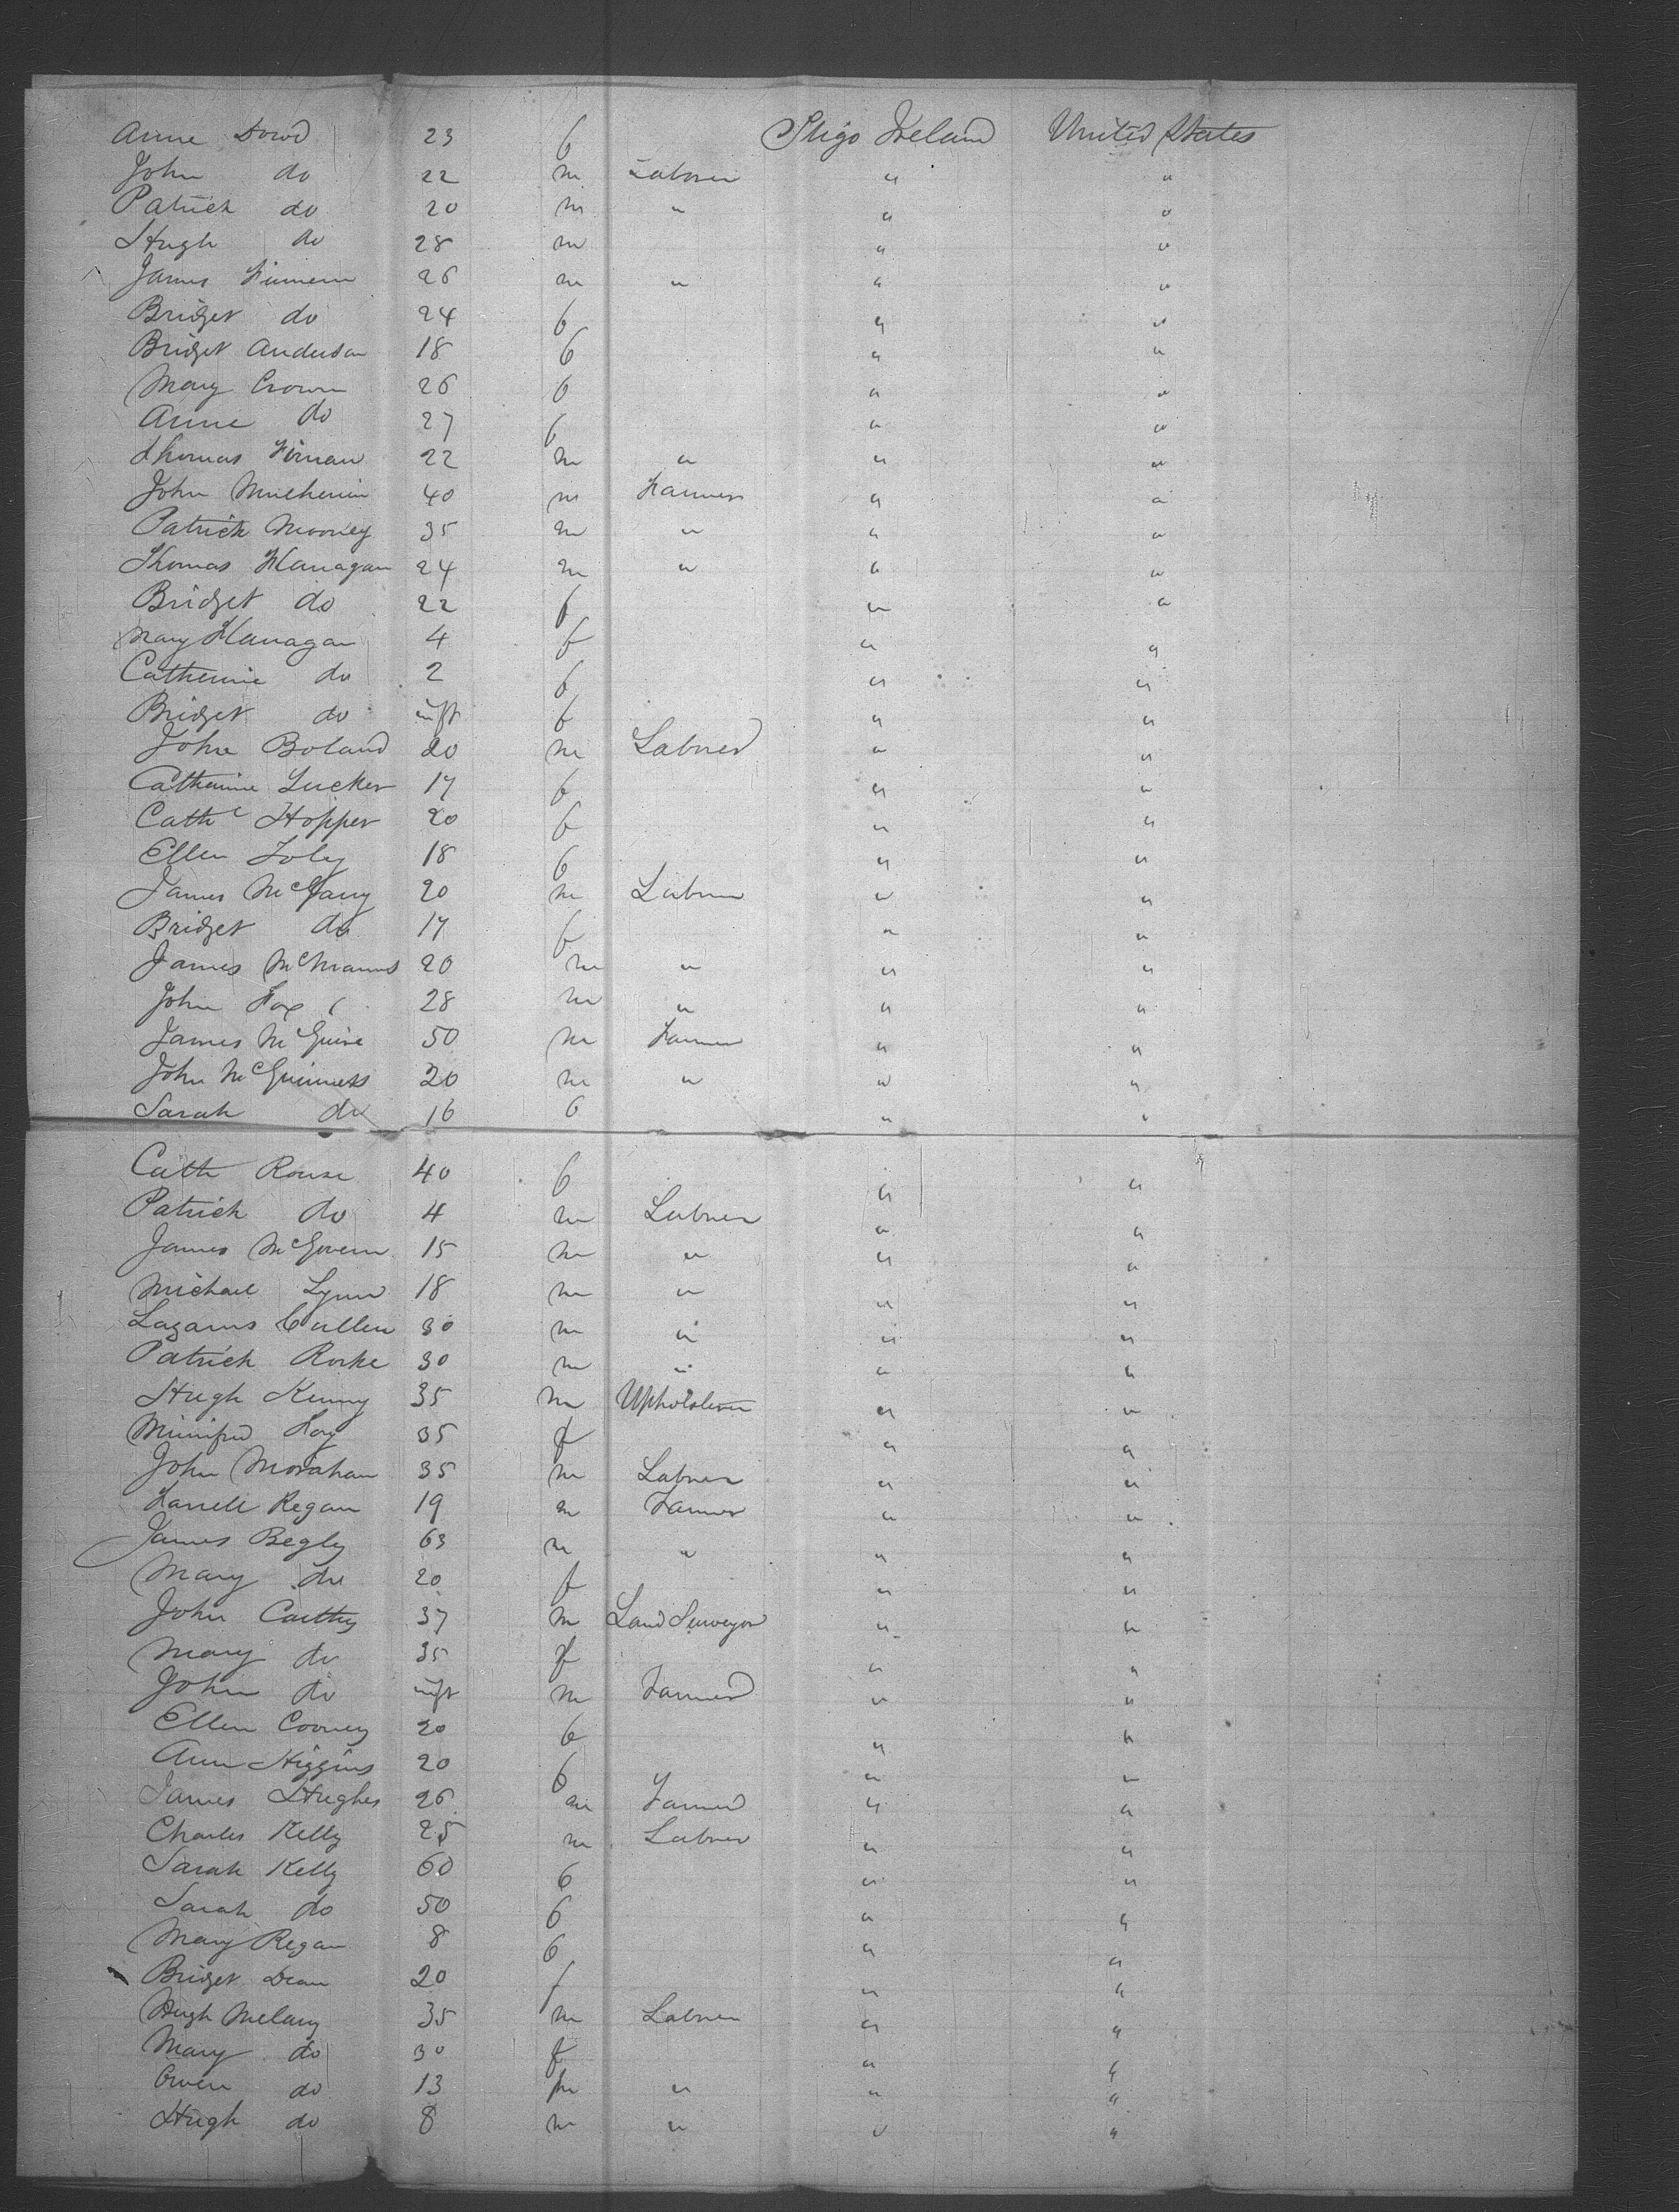 Anne Dowd 23 f Sligo Ireland United States
John do 22 m Labourer " "
Patrick do 20 m " " "
Hugh do 28 m " "
James 26 m " " "
Bridget do 24 f " "
Bridget Anderson 18 f " "
Mary Crown 26 f " "
Anne do 27 f " "
Thomas 22 m " " "
John 40 m Farmer " "
Patrick Mooney 35 m " " "
Thomas Flanagan 24 m " " "
Bridget do 22 f " "
Mary Flanagan 4 f " "
Catherine do 2 f " "
Bridget do inft f " "
John Boland 20 m Labrer " "
Catherine Tucker 17 f " "
Cathe Hopper 20 f " "
Ellen Foley 18 f " "
James McGarry 20 m Labrer " "
Bridget do 17 f " "
James McManus 20 m " " "
John Fox 28 m " " "
James McGuire 50 m Farmer " "
John McGuinness 20 m " " "
Sarah do 16 f " "
Cath Rouse 40 f " "
Patrick do 4 m Labrer " "
James McGovern 15 m " " "
Michael Lynn 18 m " " "
Lazarus Cullen 30 m " " "
Patrick Rorke 30 m " " "
Hugh Kenny 35 m Upholsterer " "
Winifred 35 f " "
John Morahan 35 m Labrer " "
Farrell Regan 19 m Farmer " "
James Begly 63 m " " "
Mary do 20 f " "
John Carthy 37 m Land Surveyor " "
Mary do 35 f " "
John do inft m Farmer " "
Ellen Cooney 20 f " "
Ann Higgins 20 f " "
James Hughes 26 m Farmer " "
Charles Kelly 25 m Labrer " "
Sarah Kelly 60 f " "
Sarah do 50 f " "
Mary Regan 8 f " "
Bridget Dean 20 f " "
Hugh 35 m Labrer " "
Mary do 30 f " "
Owen do 13 m " " "
Hugh do 8 m " " "